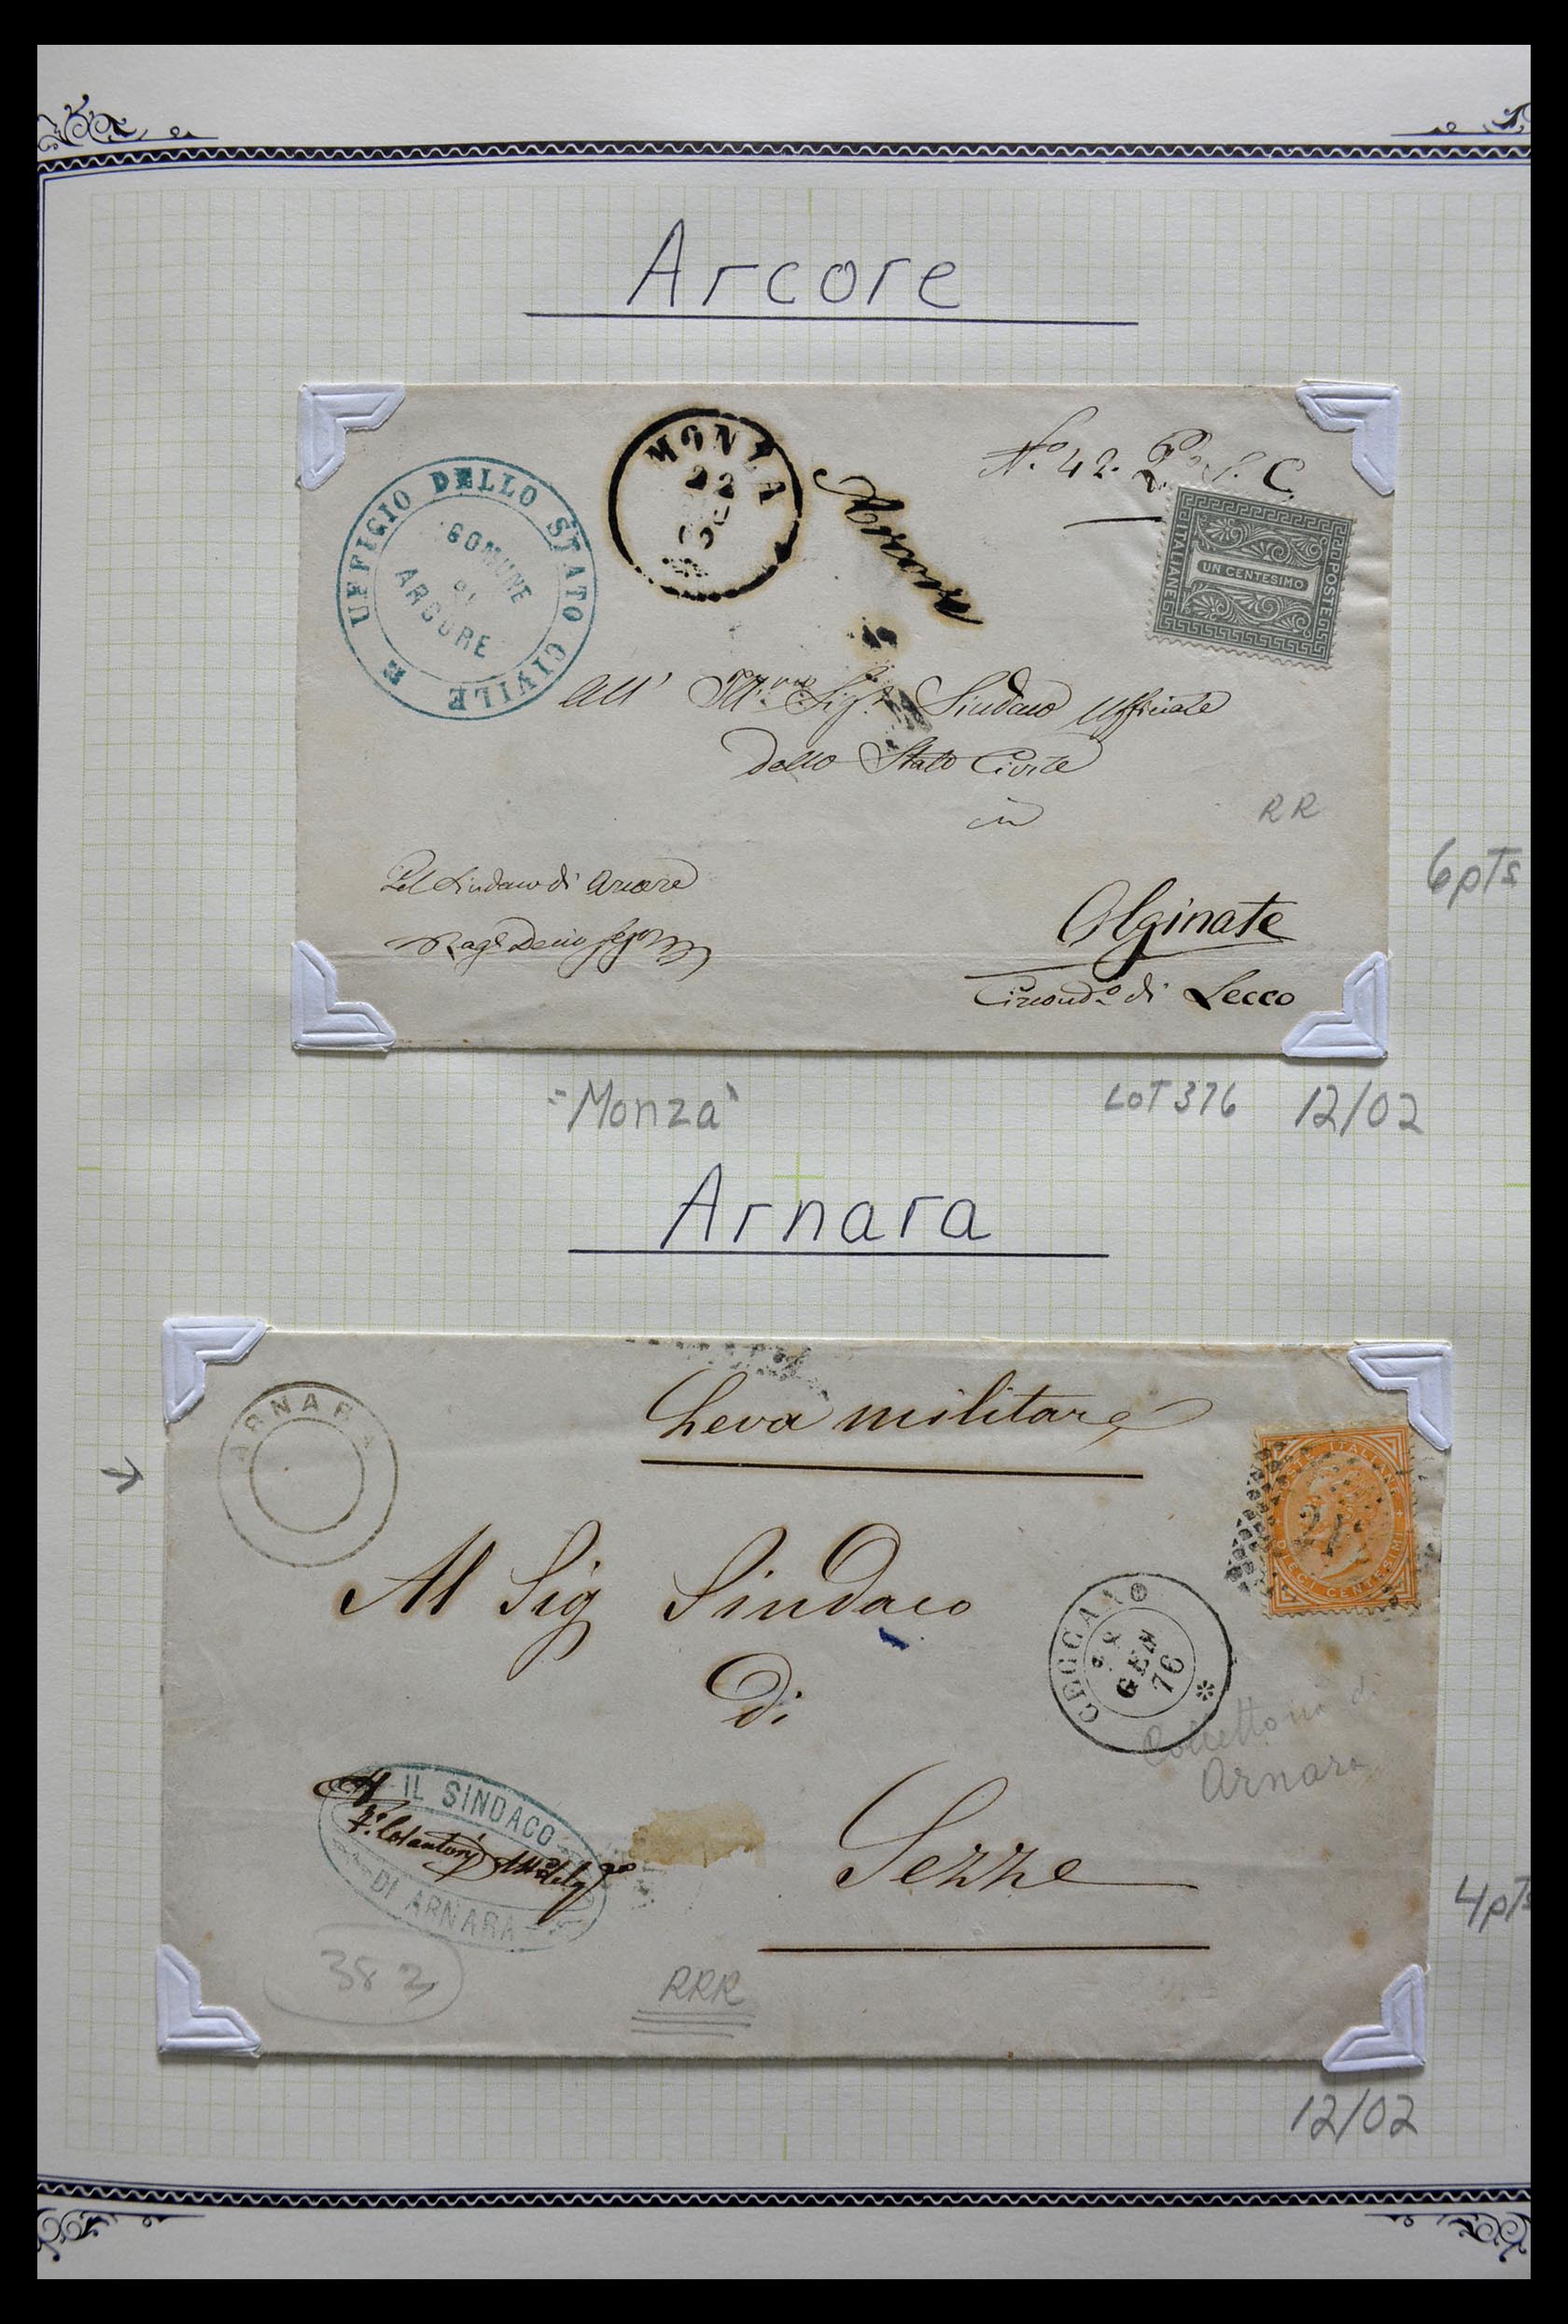 Arcore
UFFICIO DELLO STATO CIVILE
COMUNE
DI
ARCORE
MONZA
22
Arcore
N.º 42.
C.
POSTE
UN CENTESIMO
ITALIANE
All' Ill.mo Sig.r Sindaco Ufficiale
dello Stato Civile
in
RR
6pTs
Pel Sindaco di Arcore
Olginate
Circond.o di Lecco
"Monza"
LOT 376 12/02
Arnara
ARNARA
Leva militare
POSTE ITALIANE
DIECI CENTESIMI
Al Sig Sindaco
Di
CECCANO
GEN
76
Collettoria di
Arnara
IL SINDACO
DI ARNARA
Sezze
4pTs
382
RRR
12/02